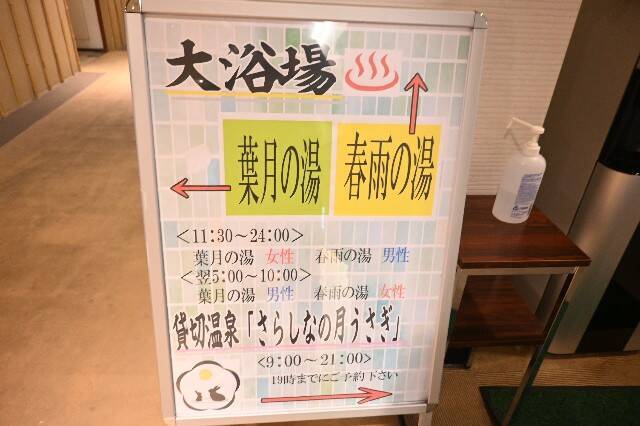 大浴場
葉月の湯 春雨の湯
<11:30～24:00>
葉月の湯 女性 春雨の湯 男性
<翌5:00～10:00>
葉月の湯 男性 春雨の湯 女性
貸切温泉「さらしなの月うさぎ」
<9:00～21:00>
19時までにご予約下さい